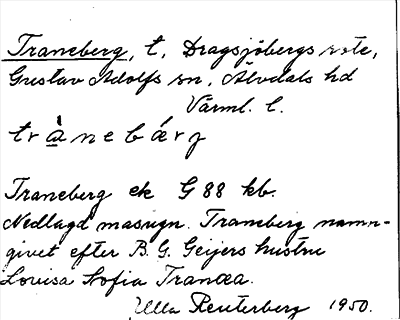 Traneberg, t, Dragsjöbergs rote,
Gustav Adolfs sn, Älvdals hd
Värml. l.
trànebǽrj
Traneberg ek G 88 kb.
Nedlagd masugn. Traneberg namn-
givet efter B. G. Geijers hustru
Lovisa Sofia Tranæa.
Ulla Reuterberg 1950.